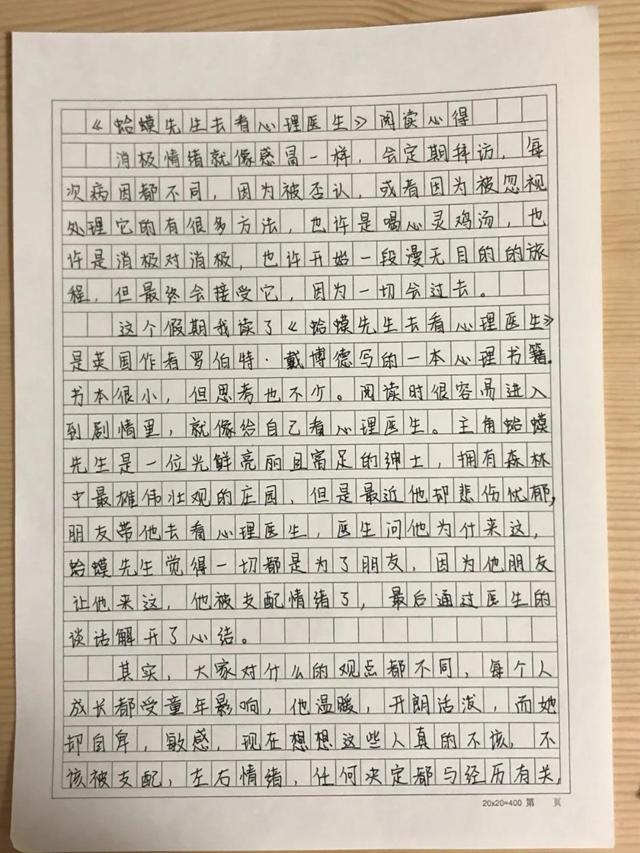 《蛤蟆先生去看心理医生》阅读心得
消极情绪就像感冒一样，会定期拜访，每
次病因都不同，因为被否认，或者因为被忽视
处理它的有很多方法，也许是喝心灵鸡汤，也
许是消极对消极，也许开始一段漫无目的的旅
程，但最终会接受它，因为一切会过去。
这个假期我读了《蛤蟆先生去看心理医生》
是英国作者罗伯特·戴博德写的一本心理书籍.
书本很小，但思考也不少。阅读时很容易进入
到剧情里，就像给自己看心理医生。主角蛤蟆
先生是一位光鲜亮丽且富足的绅士，拥有森林
中最雄伟壮观的庄园，但是最近他却悲伤忧郁，
朋友带他去看心理医生，医生问他为什来这，
蛤蟆先生觉得一切都是为了朋友，因为他朋友
让他来这，他被支配情绪了，最后通过医生的
谈话解开了心结。
其实，大家对什么的观点都不同，每个人
成长都受童年影响，他温暖，开朗活泼，而她
却自卑，敏感，现在想想这些人真的不该，不
该被支配，左右情绪，任何决定都与经历有关，
20x20=400 第 頁